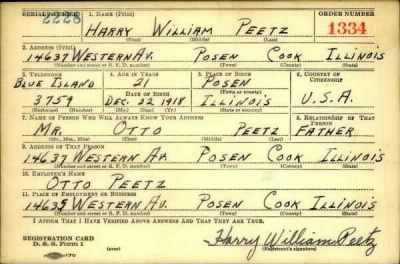 SERIAL NUMBER 1. NAME (Print) ORDER NUMBER
2228 HARRY WILLIAM PEETZ 1334
(First) (Middle) (Last)
2. ADDRESS (Print)
14637 WESTERN AV. POSEN COOK ILLINOIS
(Number and street or R. F. D. number) (Town) (County) (State)
3. TELEPHONE 4. AGE IN YEARS 5. PLACE OF BIRTH 6. COUNTRY OF CITIZENSHIP
BLUE ISLAND 21 POSEN
DATE OF BIRTH (Town or county)
3759 DEC. 22 1918 ILLINOIS U.S.A.
7. NAME OF PERSON WHO WILL ALWAYS KNOW YOUR ADDRESS 8. RELATIONSHIP OF THAT PERSON
MR. OTTO PEETZ FATHER
(Mr., Mrs., Miss) (First) (Middle) (Last)
9. ADDRESS OF THAT PERSON
14637 WESTERN AV. POSEN COOK ILLINOIS
(Number and street or R. F. D. number) (Town) (County) (State)
10. EMPLOYER'S NAME
OTTO PEETZ
11. PLACE OF EMPLOYMENT OR BUSINESS
14635 WESTERN AV. POSEN COOK ILLINOIS
(Number and street or R. F. D. number) (Town) (County) (State)
I AFFIRM THAT I HAVE VERIFIED ABOVE ANSWERS AND THAT THEY ARE TRUE.
REGISTRATION CARD
D. S. S. Form 1 (over) Harry William Peetz
(Registrant's signature)